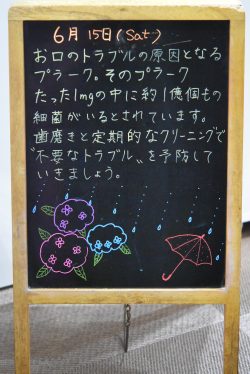 6月 15日(Sat)
お口のトラブルの原因となる
プラーク。そのプラーク
たった1mgの中に約1億個もの
細菌がいるとされています。
歯磨きと定期的なクリーニングで
不要なトラブル、を予防して
いきましょう。